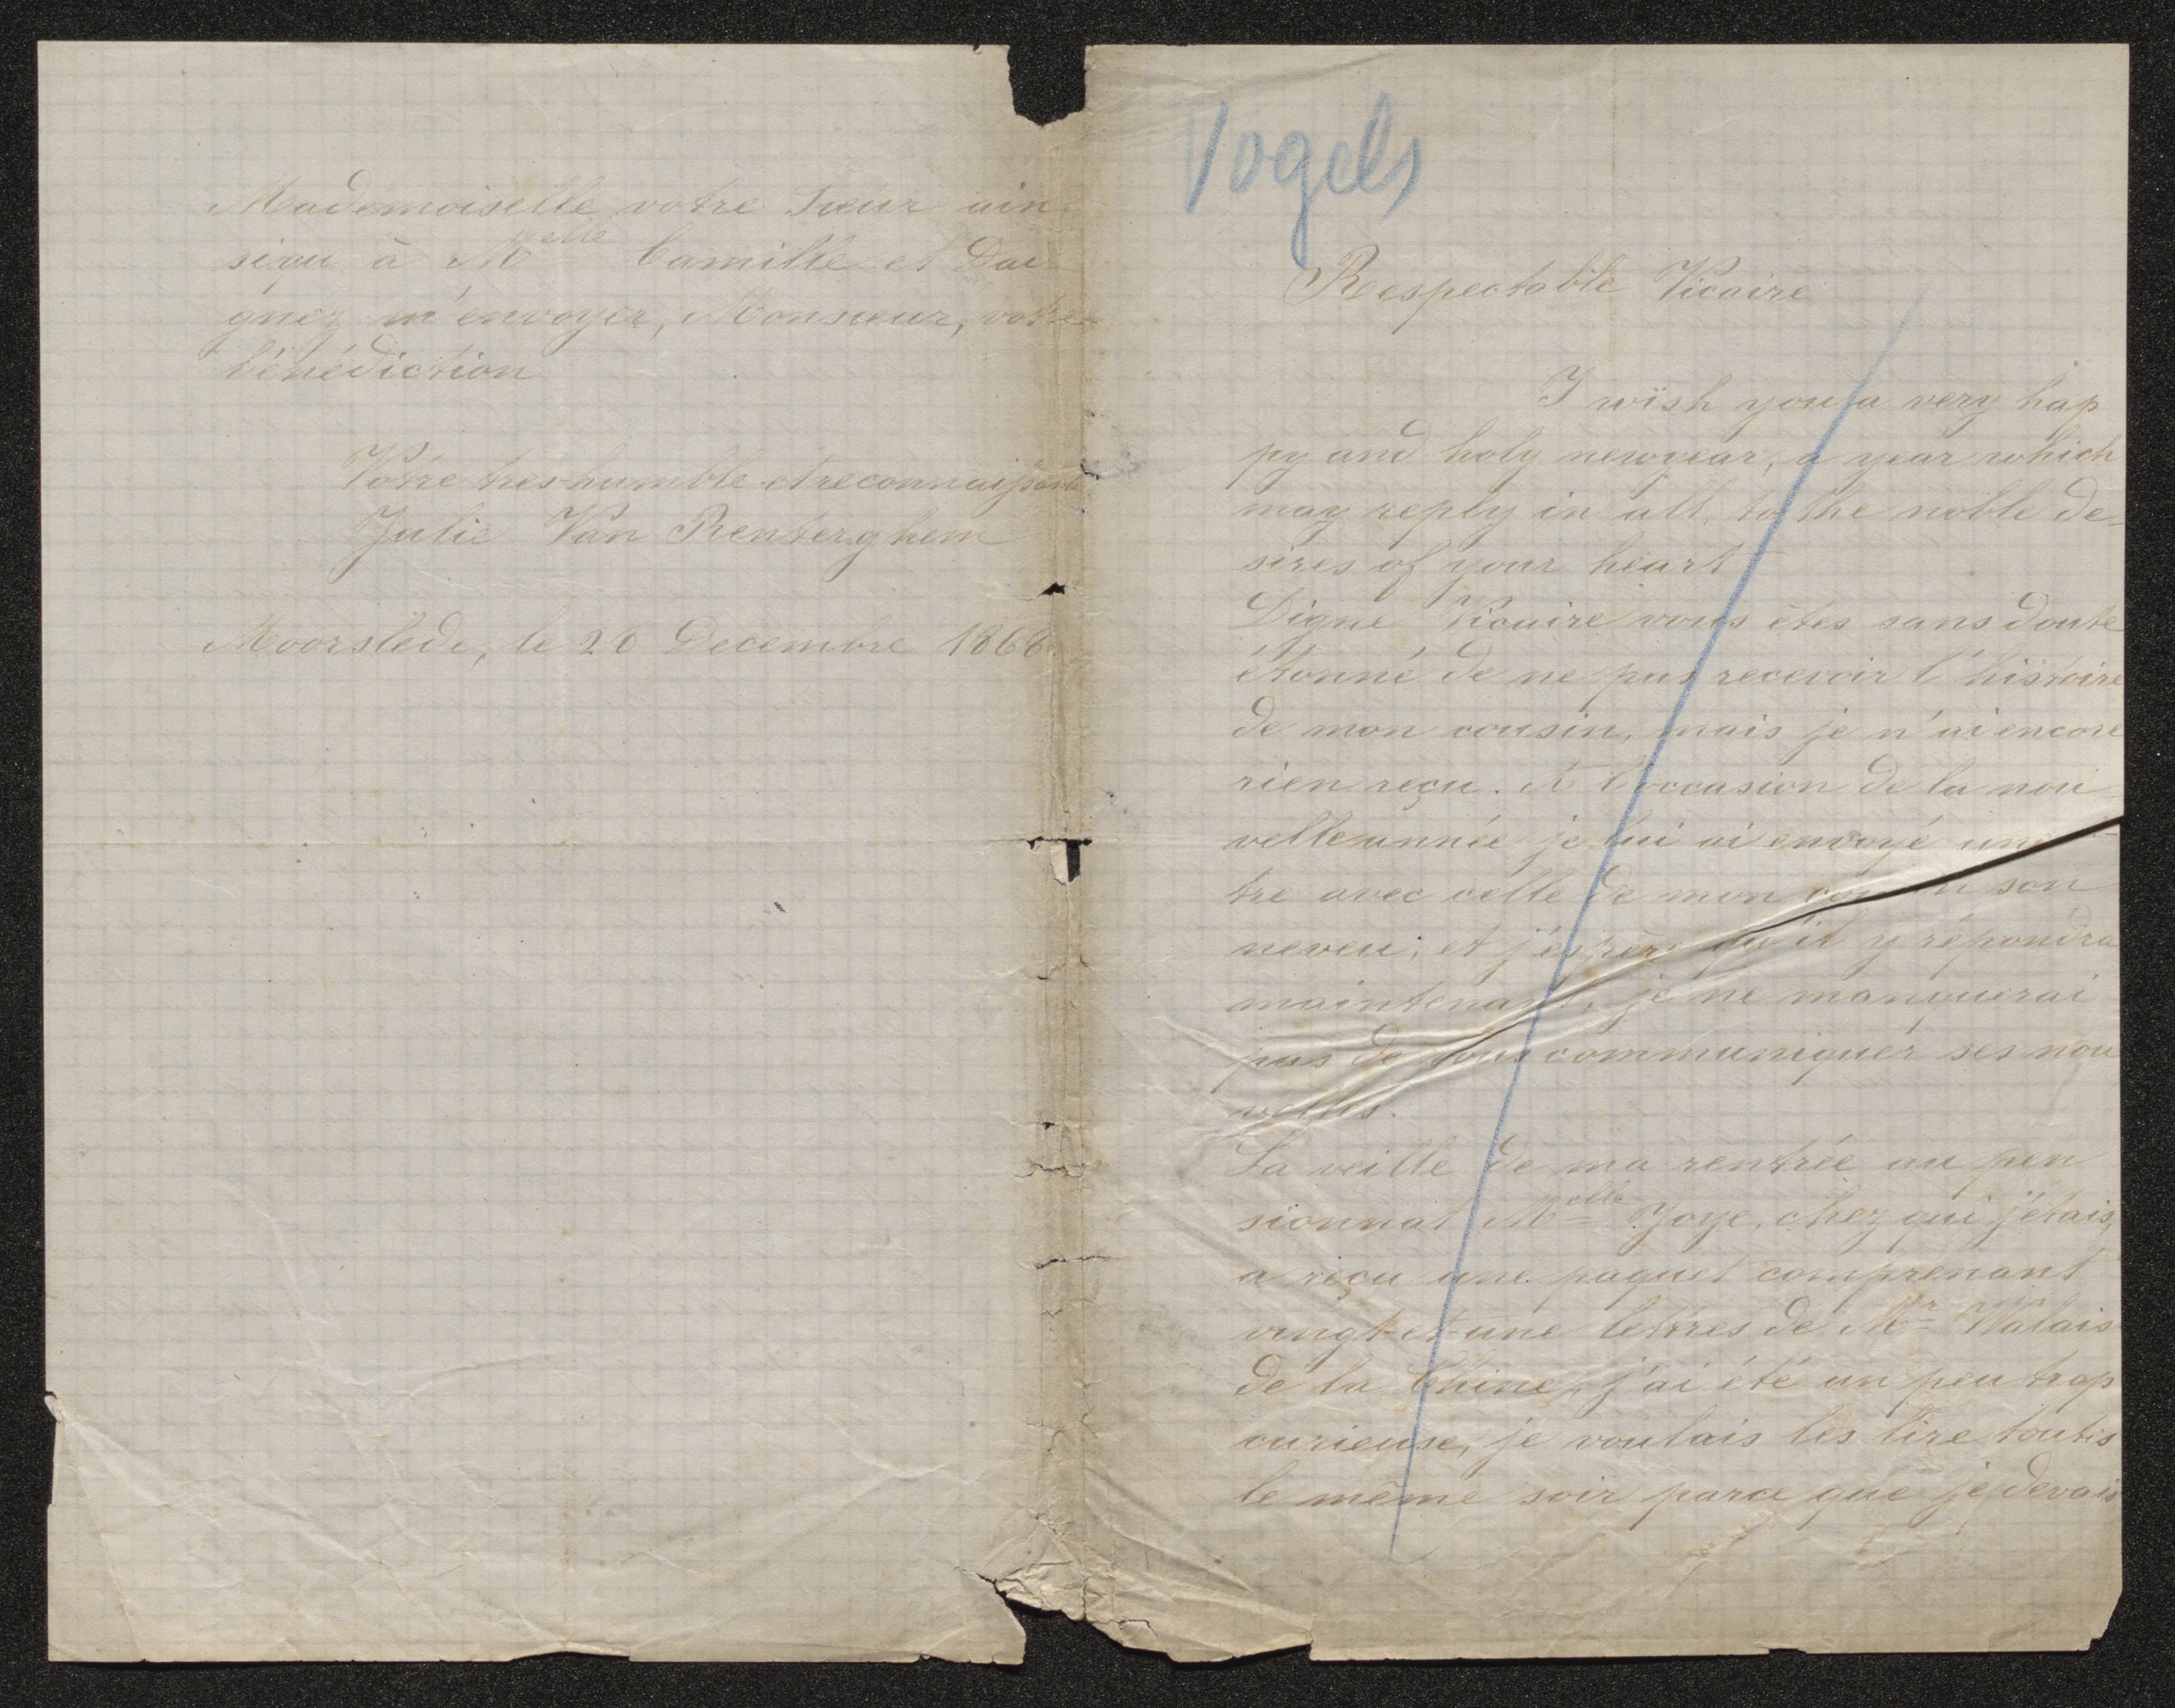 Mademoiselle votre Sœur ain
siqu à Melle Camille et Dai
gnez m'envoyer, Monsieur, votre
bénédiction
Votre tres humble et reconnaissante
Julie Van Renterghem
Moorslede, le 26 Decembre 1866
Vogels
Respectable Vicaire
I wish you a very hap
py and holy newyear, a year which
may reply in all, to the noble de-
sires of your heart
Digne Vicaire vous êtes sans doute
étonné de ne pas recevoir l'histoire
de mon cousin, mais je n'ai encore
rien reçu. A l'occasion de la nou
velle année je lui ai envoyé
tre avec celle de mon son
neveu; et j'espère qu'il y répondra
maintenant, je ne manquerai
pas de vous communiquer ses nou
velles.
La veille de ma rentrée au pen
sionnat Melle Joye, chez qui j'étais,
a reçu une paquet comprenant
vingt-et-une lettres de Mr Walais
de la Chine, j'ai été un peu trop
curieuse, je voulais les lire toutes
le même soir parce que je devais